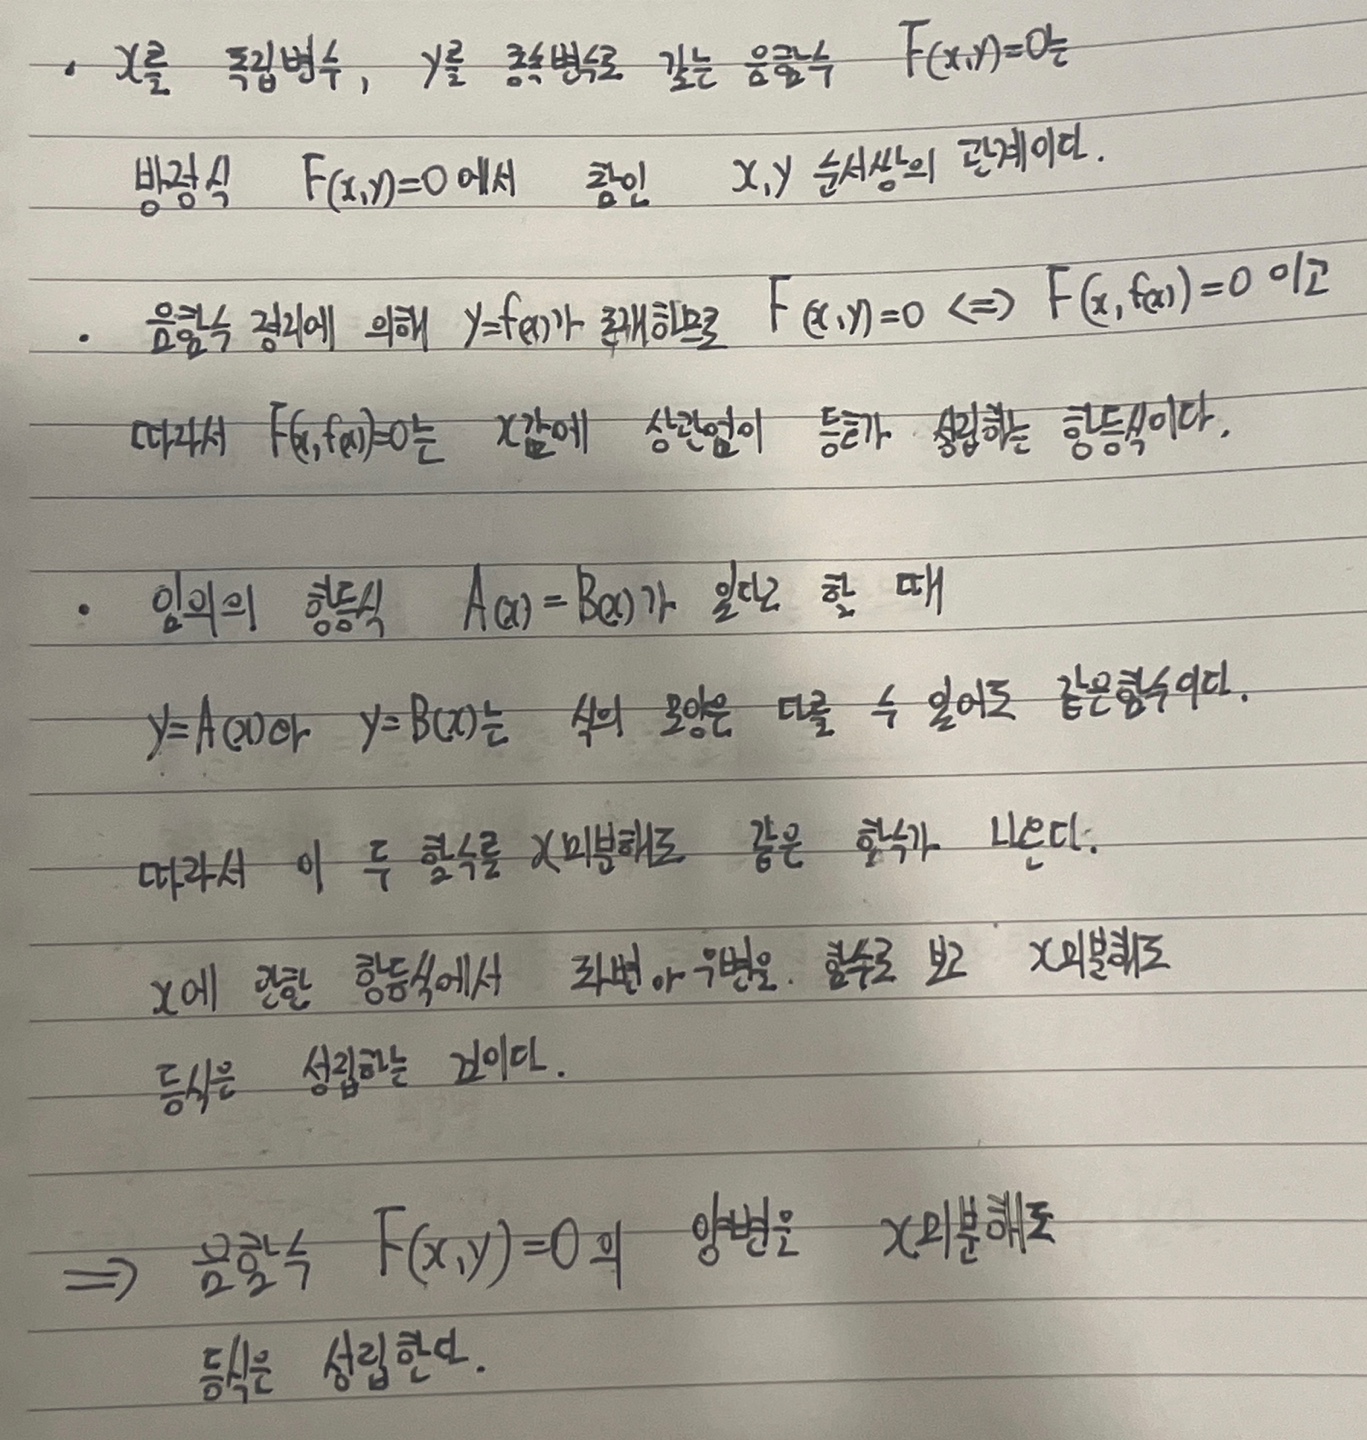 · x를 독립변수, y를 종속변수로 갖는 음함수 F(x,y)=0는
방정식 F(x,y)=0에서 참인 x,y 순서쌍의 관계이다.
· 음함수 정리에 의해 y=f(x)가 존재하므로 F(x,y)=0 <=> F(x,f(x))=0 이고
따라서 F(x,f(x))=0는 x값에 상관없이 등호가 성립하는 항등식이다.
· 임의의 항등식 A(x)=B(x)가 있다고 할 때
y=A(x)와 y=B(x)는 식의 모양은 다를 수 있어도 같은함수이다.
따라서 이 두 함수를 x미분해도 같은 함수가 나온다.
x에 관한 항등식에서 좌변과 우변을 함수로 보고 x미분해도
등식은 성립하는 것이다.
=> 음함수 F(x,y)=0의 양변을 x미분해도
등식은 성립한다.